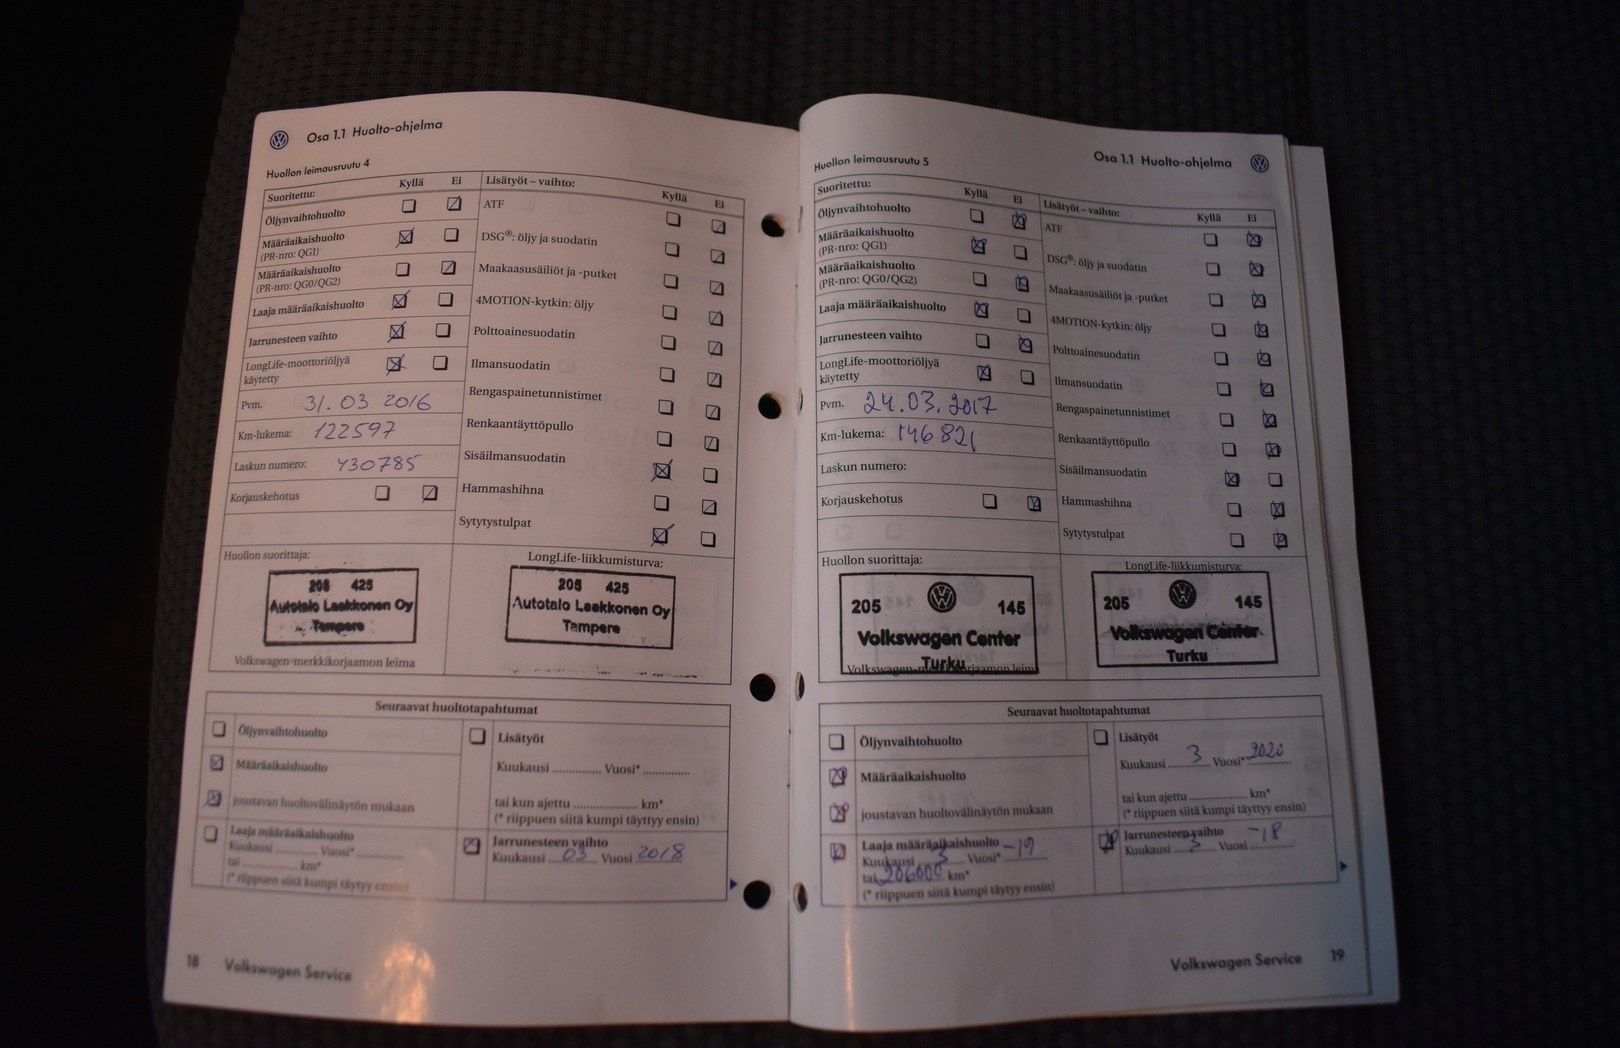 Osa 1.1 Huolto-ohjelma
Huollon leimausruutu 4
Suoritettu: Kyllä Ei
Öljynvaihtohuolto
Määräaikaishuolto
(PR-nro: QG1)
Määräaikaishuolto
(PR-nro: QG0/QG2)
Laaja määräaikaishuolto
Jarrunesteen vaihto
LongLife-moottoriöljyä
käytetty
Pvm. 31.03.2016
Km-lukema: 122597
Laskun numero: 430785
Korjauskehotus
Lisätyöt – vaihto: Kyllä Ei
ATF
DSG®: öljy ja suodatin
Maakaasusäiliöt ja -putket
4MOTION-kytkin: öljy
Polttoainesuodatin
Ilmansuodatin
Rengaspainetunnistimet
Renkaantäyttöpullo
Sisäilmansuodatin
Hammashihna
Sytytystulpat
Huollon suorittaja:
208 425
Autotalo Laakkonen Oy
Tampere
Volkswagen-merkkikorjaamon leima
LongLife-liikkumisturva:
208 425
Autotalo Laakkonen Oy
Tampere
Seuraavat huoltotapahtumat
Öljynvaihtohuolto
Määräaikaishuolto
joustavan huoltovälinäytön mukaan
Laaja määräaikaishuolto
Kuukausi ............ Vuosi* ............
tai ............ km*
(* riippuen siitä kumpi täytyy ensin)
Lisätyöt
Kuukausi ............ Vuosi* ............
tai kun ajettu ............ km*
(* riippuen siitä kumpi täyttyy ensin)
Jarrunesteen vaihto
Kuukausi 03 Vuosi 2018
18 Volkswagen Service
Osa 1.1 Huolto-ohjelma
Huollon leimausruutu 5
Suoritettu: Kyllä Ei
Öljynvaihtohuolto
Määräaikaishuolto
(PR-nro: QG1)
Määräaikaishuolto
(PR-nro: QG0/QG2)
Laaja määräaikaishuolto
Jarrunesteen vaihto
LongLife-moottoriöljyä
käytetty
Pvm. 24.03.2017
Km-lukema: 146821
Laskun numero:
Korjauskehotus
Lisätyöt – vaihto: Kyllä Ei
ATF
DSG®: öljy ja suodatin
Maakaasusäiliöt ja -putket
4MOTION-kytkin: öljy
Polttoainesuodatin
Ilmansuodatin
Rengaspainetunnistimet
Renkaantäyttöpullo
Sisäilmansuodatin
Hammashihna
Sytytystulpat
Huollon suorittaja:
205 145
Volkswagen Center
Turku
Volkswagen-merkkikorjaamon leima
LongLife-liikkumisturva:
205 145
Volkswagen Center
Turku
Seuraavat huoltotapahtumat
Öljynvaihtohuolto
Määräaikaishuolto
joustavan huoltovälinäytön mukaan
Laaja määräaikaishuolto
Kuukausi 3 Vuosi* -19
tai 206000 km*
(* riippuen siitä kumpi täytyy ensin)
Lisätyöt
Kuukausi 3 Vuosi* 2020
tai kun ajettu ............ km*
(* riippuen siitä kumpi täyttyy ensin)
Jarrunesteen vaihto
Kuukausi 3 Vuosi -18
Volkswagen Service 19